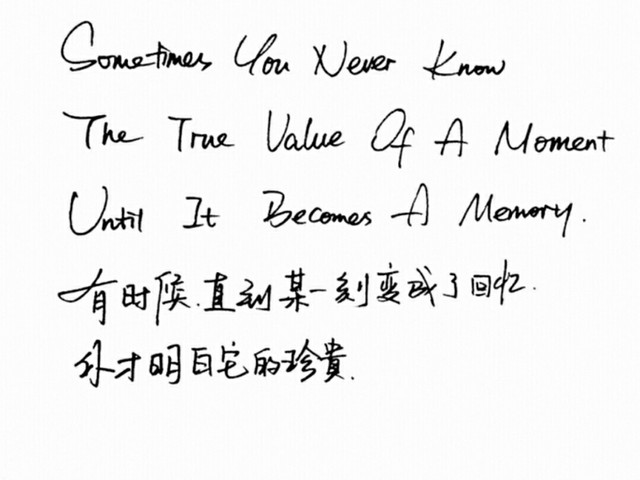 Sometimes You Never Know
The True Value Of A Moment
Until It Becomes A Memory.
有时候.直到某一刻变成了回忆.
你才明白它的珍贵.